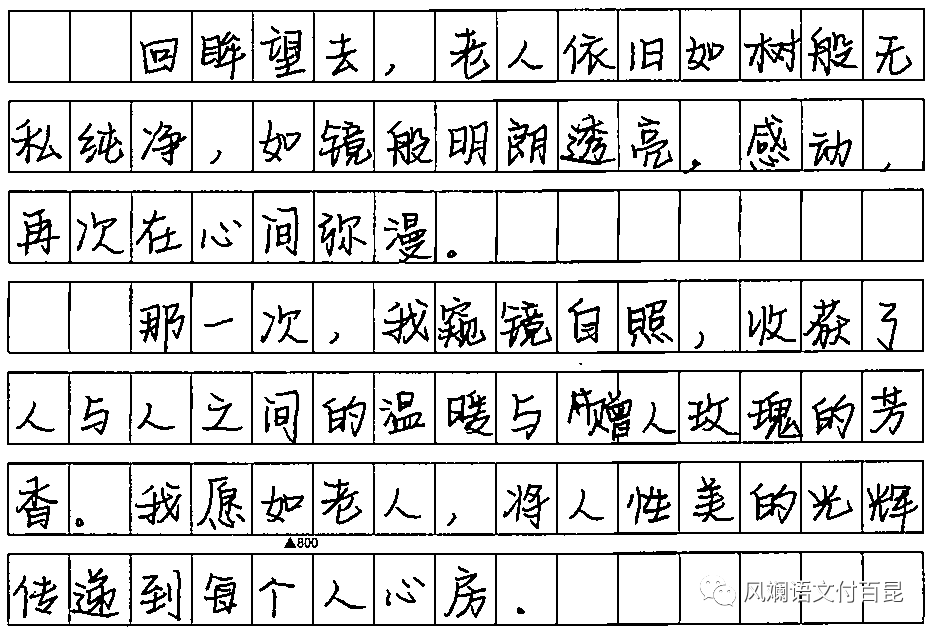 回眸望去，老人依旧如树般无
私纯净，如镜般明朗透亮，感动，
再次在心间弥漫。
那一次，我窥镜自照，收获了
人与人之间的温暖与赠人玫瑰的芳
香。我愿如老人，将人性美的光辉
▲800
传递到每个人心房．
风斓语文付百昆